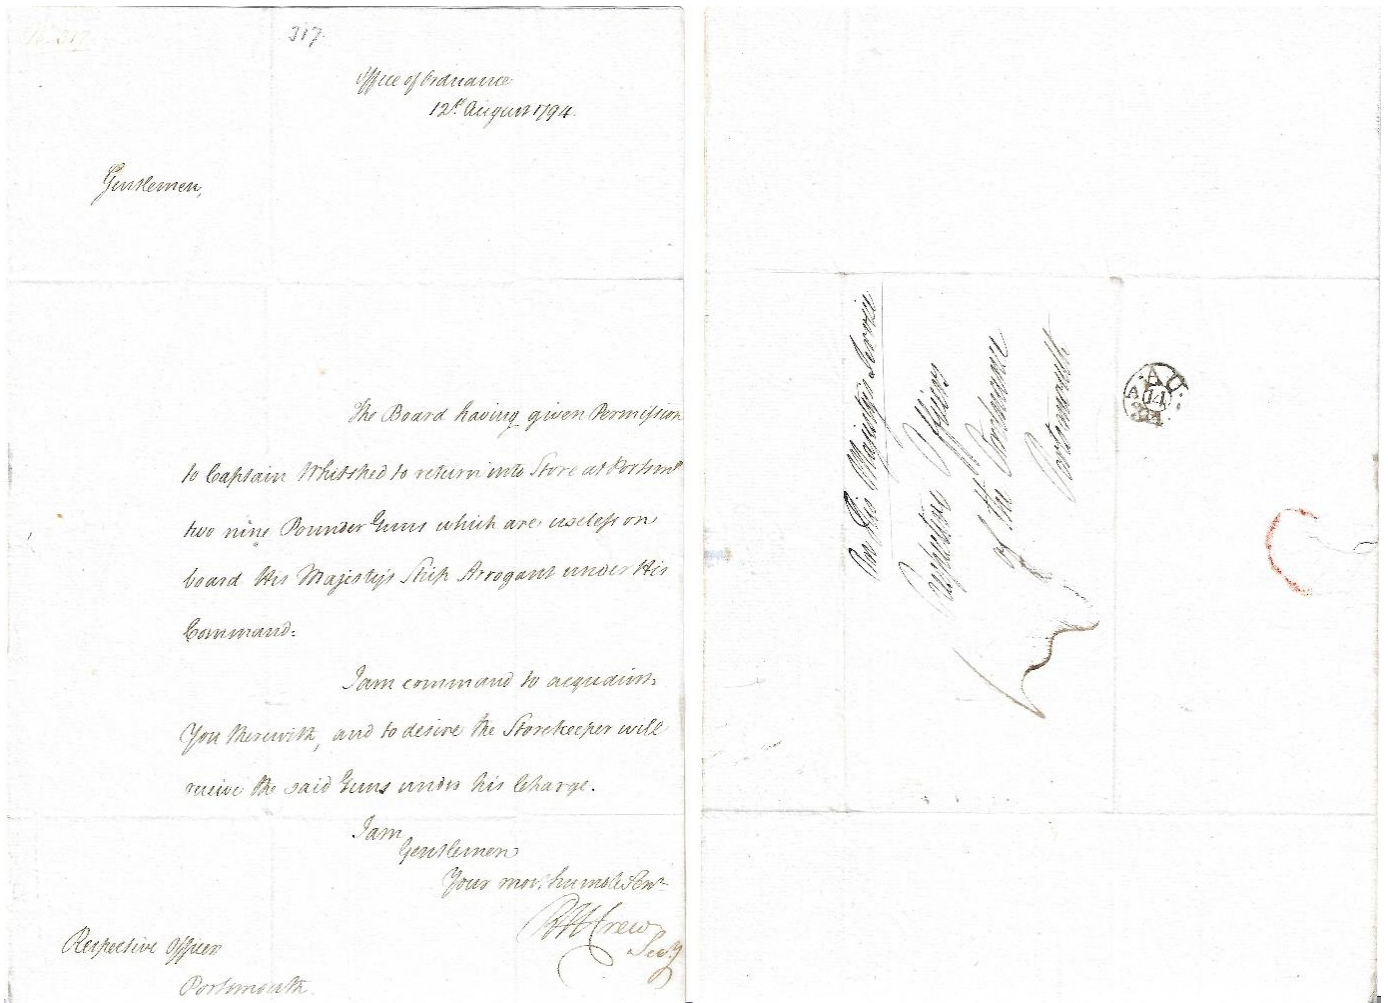 No. 317.
317.
Office of Ordnance
12th August 1794.
Gentlemen,
The Board having given Permission
to Captain Whitshed to return into Store at Portsmo
two nine Pounder Guns which are useless on
board His Majesty's Ship Arrogant under His
Command.
I am command to acquaint
You therewith, and to desire the Storekeeper will
receive the said Guns under his Charge.
I am
Gentlemen
Your most humble Servt
R H Crew
Secy
Respective Officer
Portsmouth.
On His Majesty's Service
Respective Officers
of the Ordnance
Portsmouth
AU
A 14
94